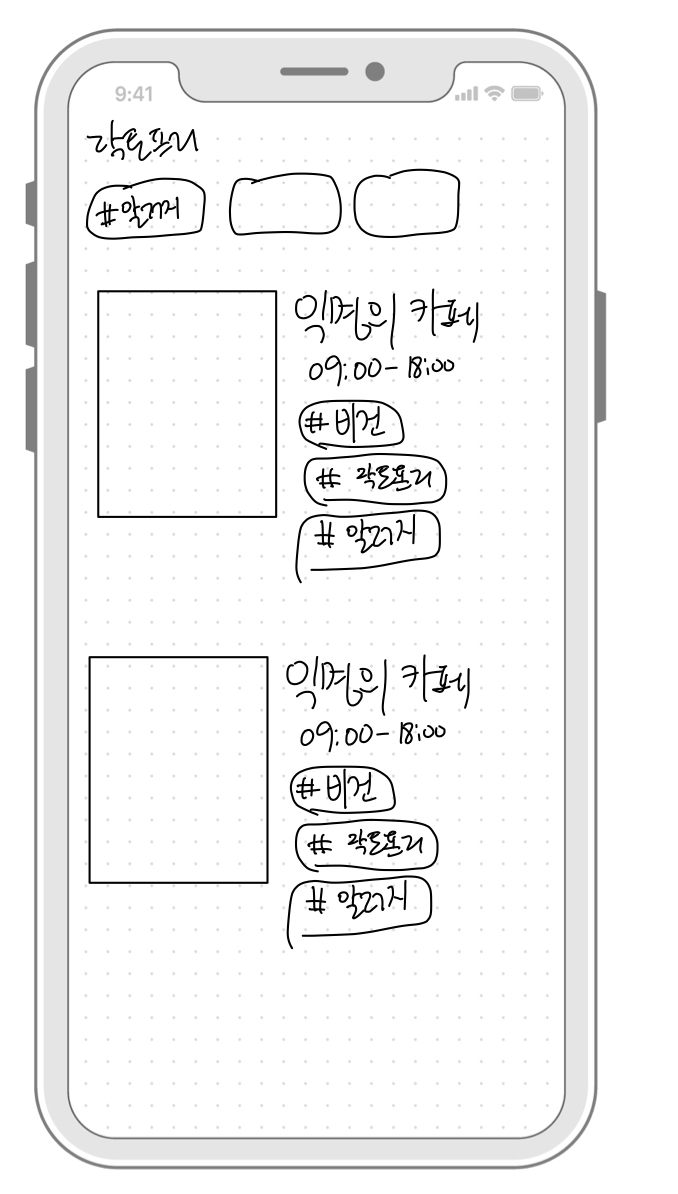 9:41
락토프리
#알러지
익명의 카페
09:00-18:00
#비건
# 락토프리
# 알러지
익명의 카페
09:00-18:00
#비건
# 락토프리
# 알러지